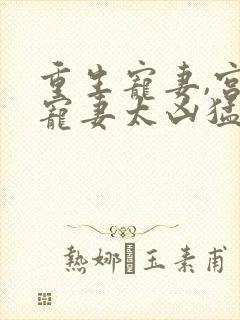 重生寵妻,宮
寵妻太凶猛
熱娜 玉素甫